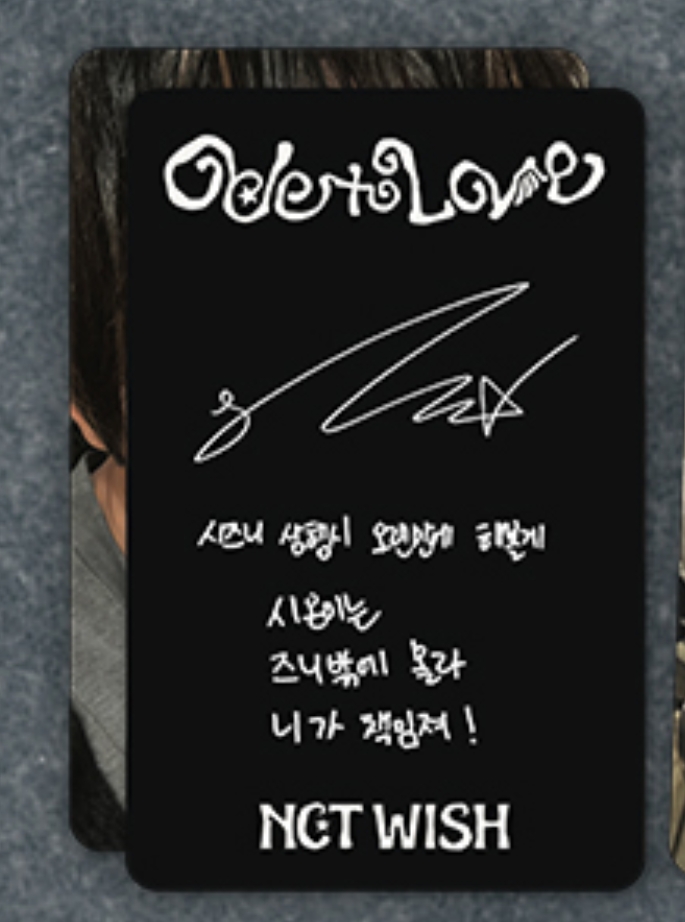 Ode to Love
시즈니 삼행시 오랜만에 해볼게
시온이는
즈니밖에 몰라
니가 책임져!
NCT WISH